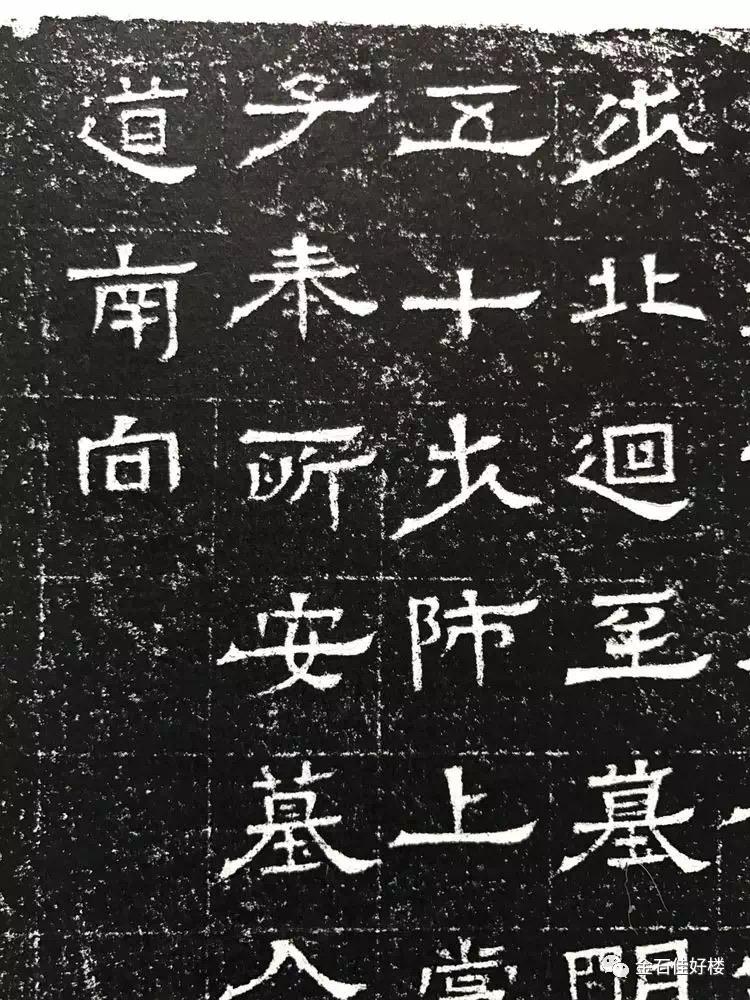 步北迴至墓門
五十步師上當
子奉所安墓入
道南向
金石佳好楼